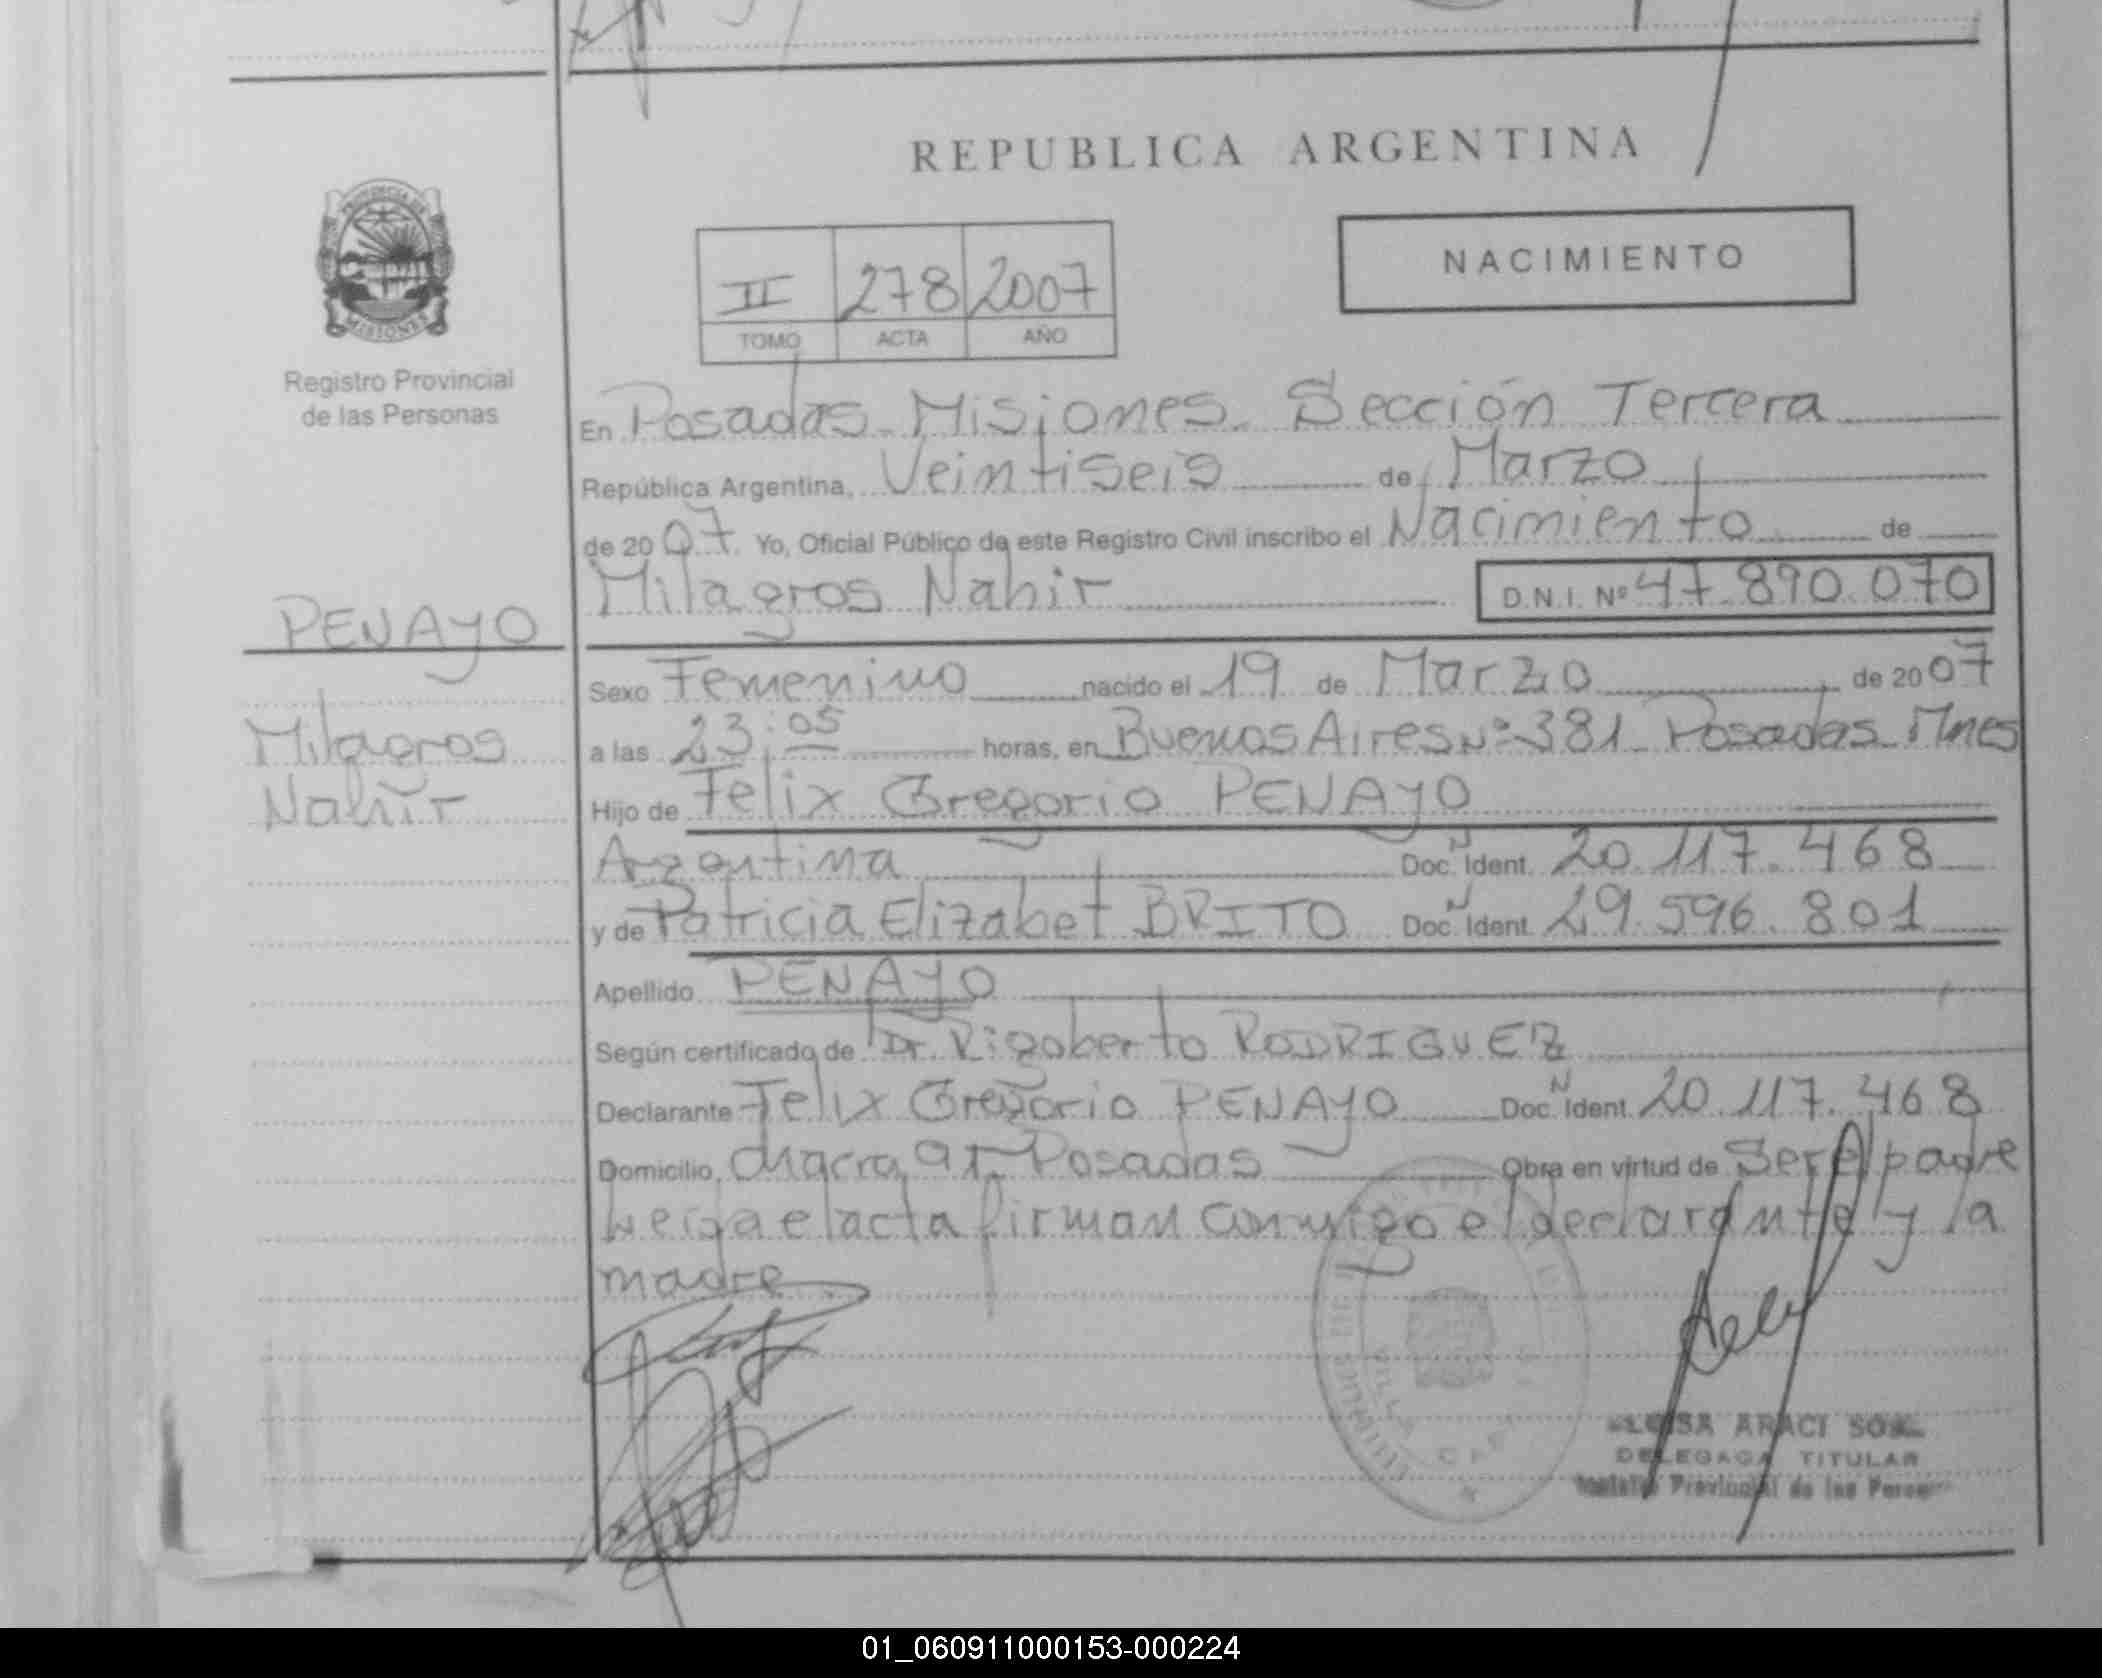 REPUBLICA ARGENTINA
PROVINCIA DE
MISIONES
Registro Provincial
de las Personas
NACIMIENTO
II 278 2007
TOMO ACTA AÑO
En Posadas Misiones. Sección Tercera
República Argentina, Veintiseis de Marzo
de 2007. Yo, Oficial Público de este Registro Civil inscribo el Nacimiento de
Milagros Nahir D.N.I. Nº 47.890.070
PENAYO
Milagros
Nahir
Sexo Femenino nacido el 19 de Marzo de 2007
a las 23:05 horas, en Buenos Aires Nº 381 Posadas Mnes
Hijo de Felix Gregorio PENAYO
Argentina Doc. N Ident. 20.117.468
y de Patricia Elizabet BRITO Doc. N Ident. 29.596.801
Apellido PENAYO
Según certificado de Dr. Rigoberto RODRIGUEZ
Declarante Felix Gregorio PENAYO Doc. N Ident. 20.117.468
Domicilio Chacra Posadas Obra en virtud de Ser el padre
Leida el acta firman conmigo el declarante y la
madre
ARACI
DELEGADA TITULAR
Provincial de las
01_060911000153-000224